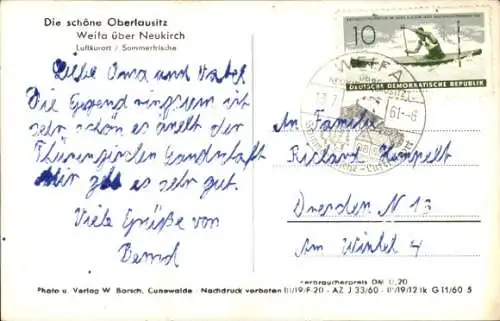 Die schöne Oberlausitz
Weifa über Neukirch
Luftkurort / Sommerfrische
Liebe Oma und Vater
Die Gegend ringsum ist
sehr schön es ähnelt der
Thüringischen Landschaft
Mir geht es sehr gut.
Viele Grüße von
Bernd
10
DEUTSCHE DEMOKRATISCHE REPUBLIK
WEIFA
über
13.7.61-6
An Familie
Richard
Dresden N 13
Am Winkel 4
Photo u. Verlag W. Barsch, Cunewalde / Nachdruck verboten III/19/F-20 - AZ J 33/60 -